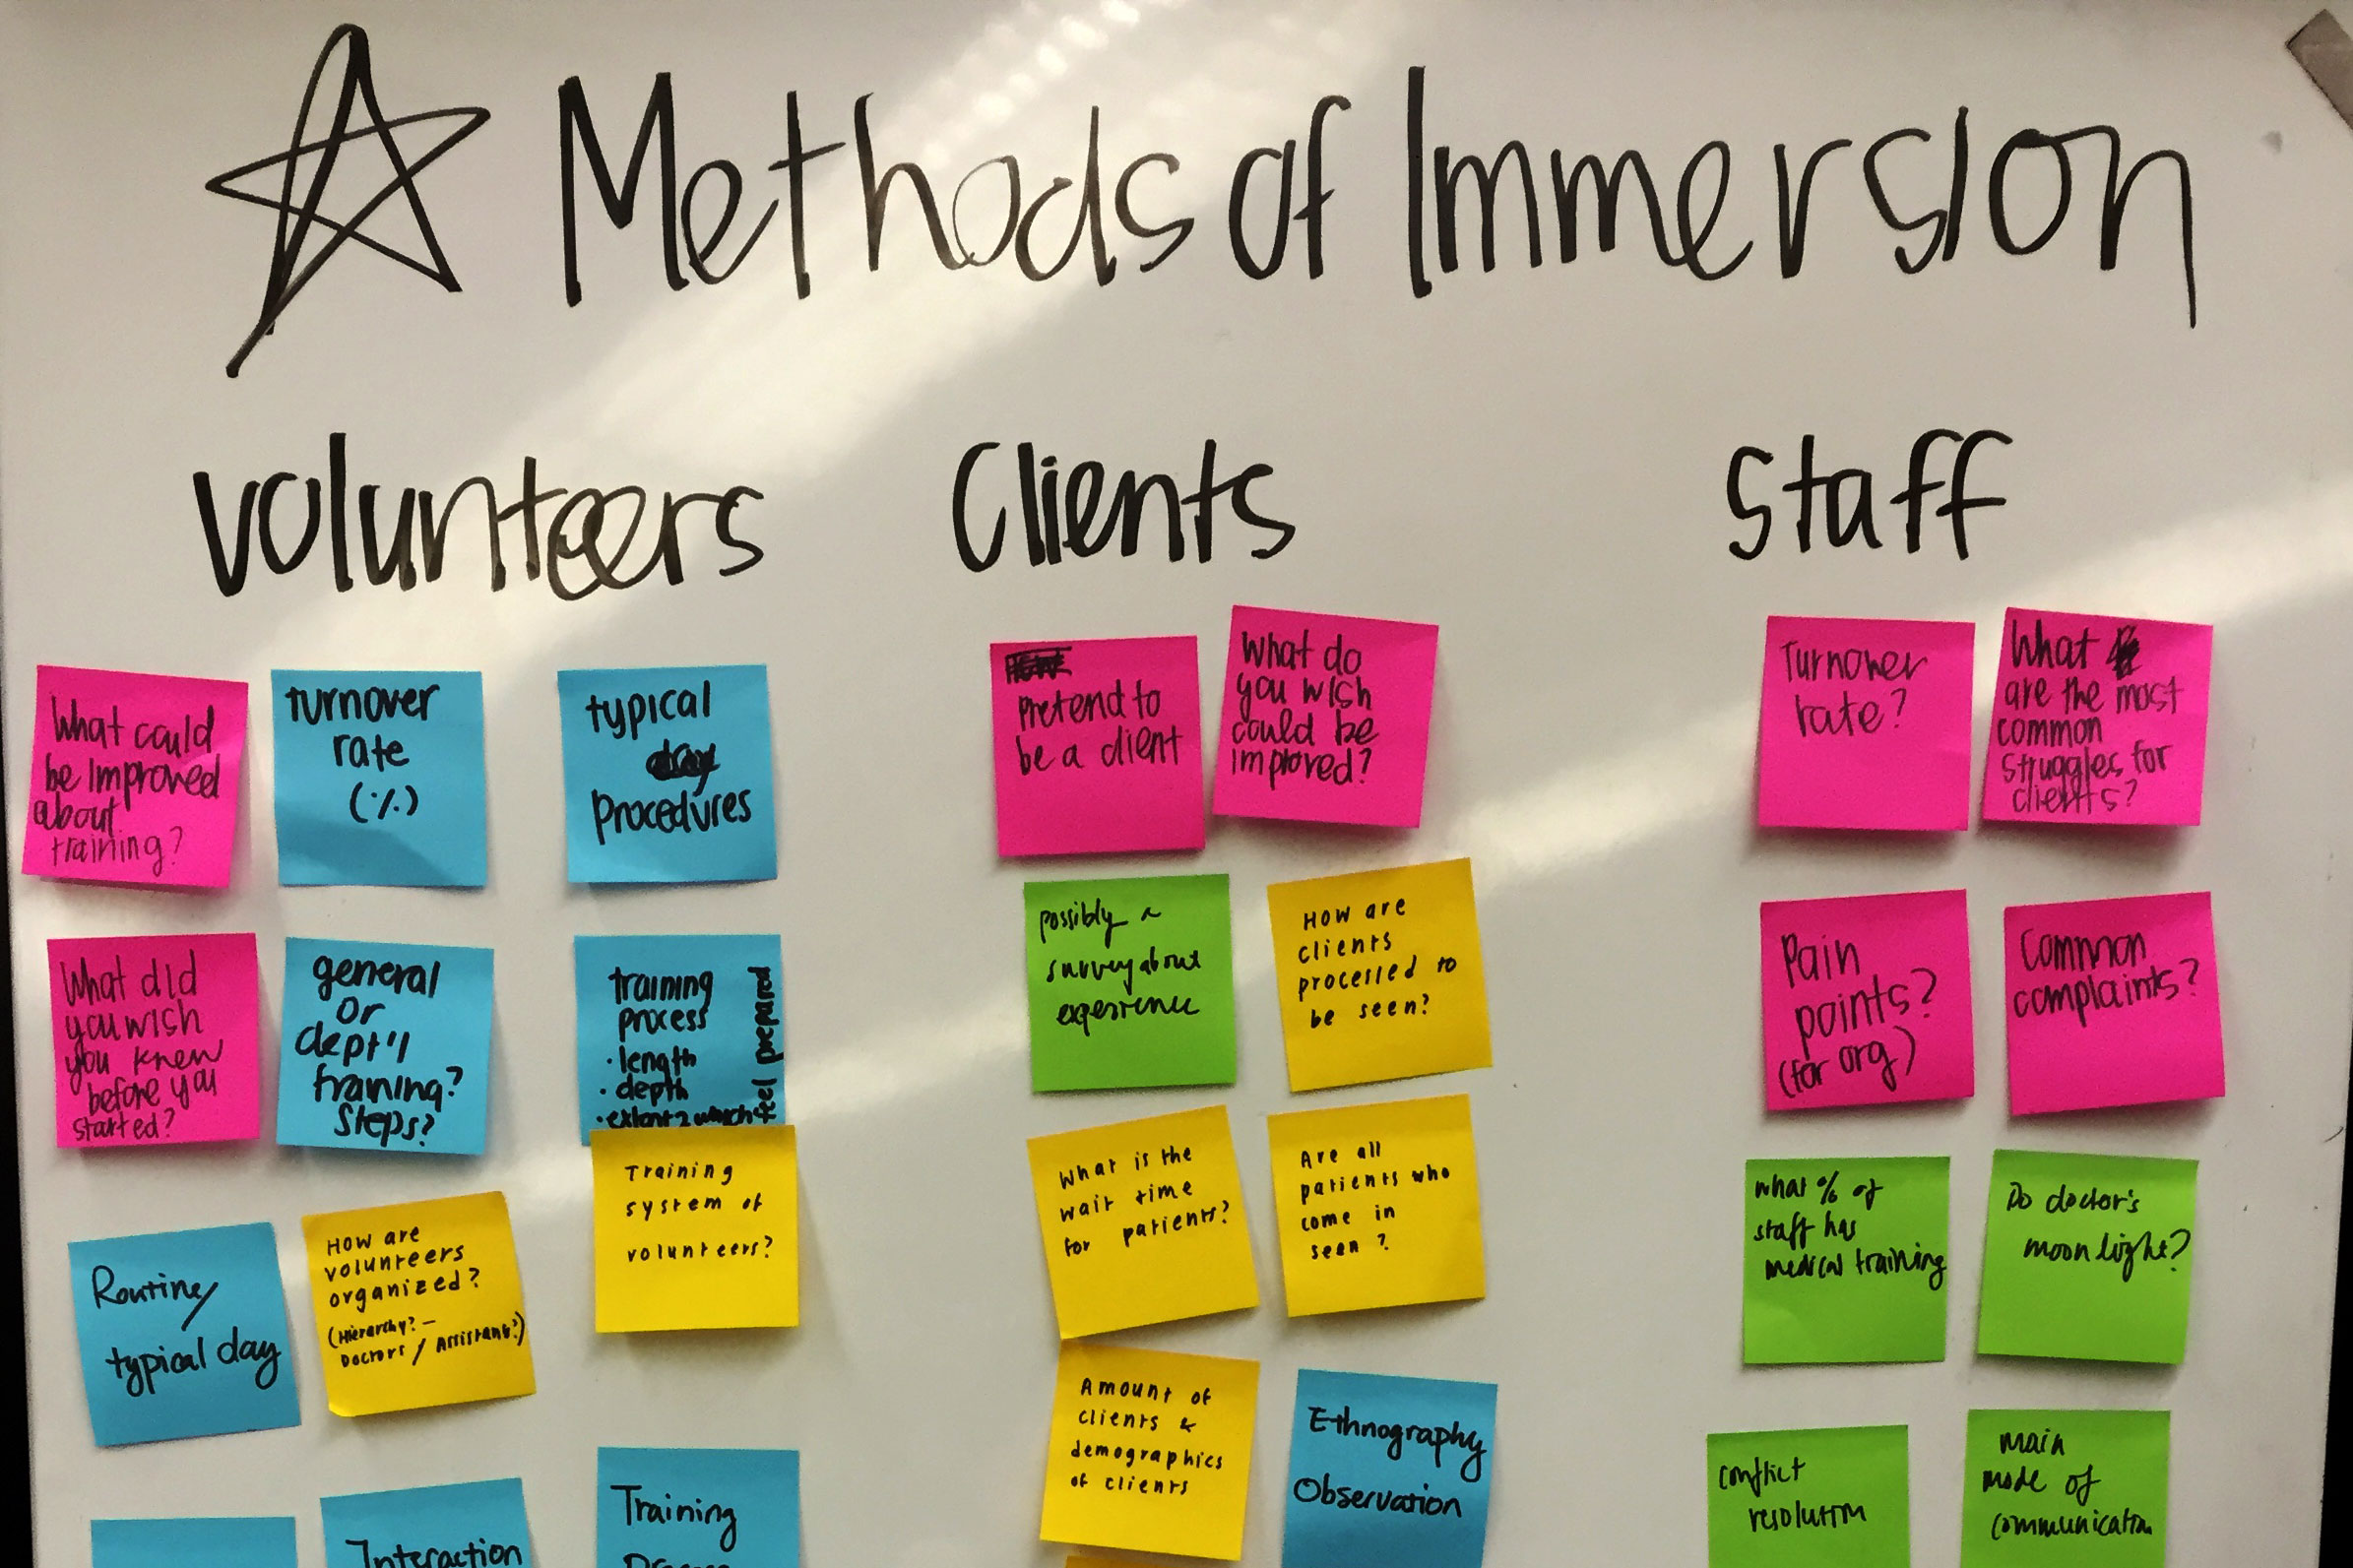 Methods of Immersion
Volunteers
What could
be improved
about
training?
turnover
rate
(%)
typical
procedures
What did
you wish
you knew
before you
started?
general
or
dept'l
training?
Steps?
training
process
· length
· depth
· extent 2 which
feel prepared
Routine/
typical day
How are
volunteers
organized?
(Hierarchy? —
Doctors / Assistant?)
Training
system of
volunteers?
Interaction
Training
Clients
Pretend to
be a client
What do
you wish
could be
improved?
possibly a
survey about
experience
How are
clients
processed to
be seen?
What is the
wait time
for patients?
Are all
patients who
come in
seen?
Amount of
clients &
demographics
of clients
Ethnography
Observation
Staff
Turnover
rate?
What
are the most
common
struggles for
clients?
Pain
points?
(for org)
Common
complaints?
what % of
staff has
medical training
Do doctor's
moonlight?
conflict
resolution
main
mode of
communication